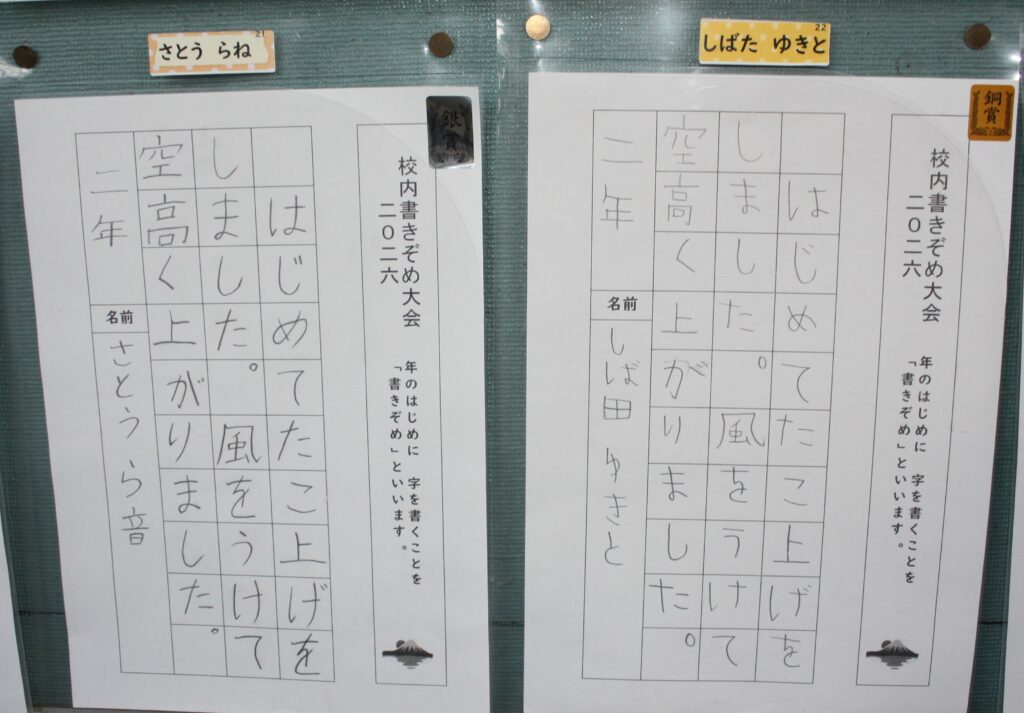 さとう らね
21
銀賞
校内書きぞめ大会
二〇二六
年のはじめに 字を書くことを
「書きぞめ」といいます。
はじめてたこ上げを
しました。風をうけて
空高く上がりました。
二年
名前
さとうら音
しばた ゆきと
22
銅賞
校内書きぞめ大会
二〇二六
年のはじめに 字を書くことを
「書きぞめ」といいます。
はじめてたこ上げを
しました。風をうけて
空高く上がりました。
二年
名前
しば田 ゆきと